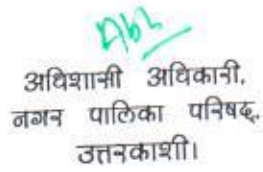 अधिशासी अधिकारी,
नगर पालिका परिषद्,
उत्तरकाशी।